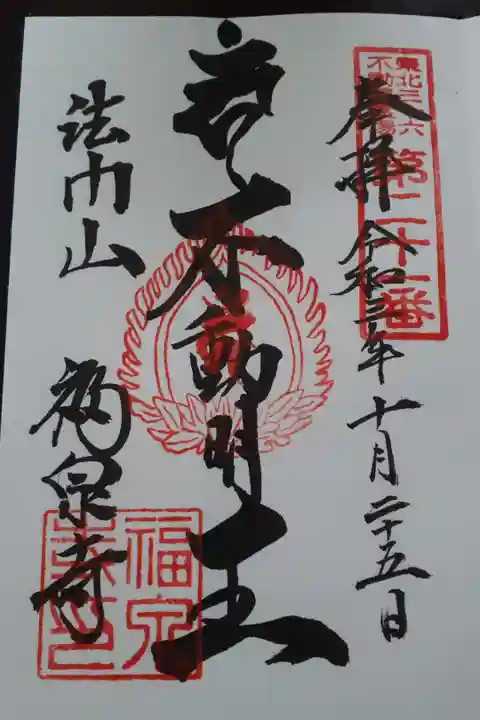 東北三十六
不動尊霊場
第二十一番
奉拝 令和三年十月二十五日
不動明王
法門山 福泉寺
福泉
寺印